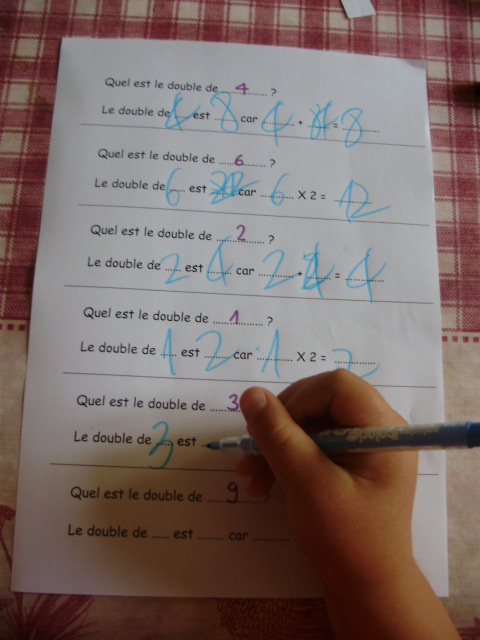 Quel est le double de ....4.... ?
Le double de 4 est 8 car 4 + 4 = 8
Quel est le double de ....6.... ?
Le double de 6 est 12 car 6 X 2 = 12
Quel est le double de ....2.... ?
Le double de 2 est 4 car 2 + 2 = 4
Quel est le double de ....1.... ?
Le double de 1 est 2 car 1 X 2 = 2
Quel est le double de ....3
Le double de 3 est ...
Quel est le double de ....9.... ?
Le double de ...... est ......... car ............